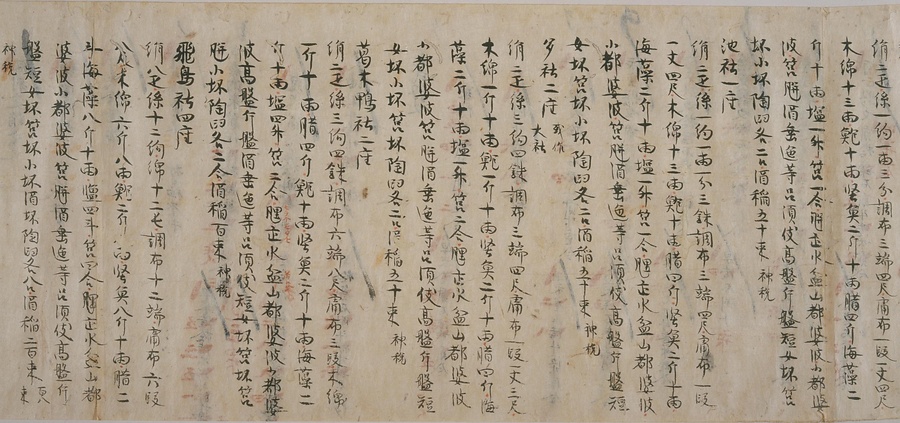 絹二疋絲一絇一両三分調布三端四尺庸布一段一丈四尺
木綿十三両鰒十両堅魚二斤十両腊四斤海藻二
斤十両塩一升筥一合韓竈水盆山都婆波小都婆
波筥瓶酒垂匜等呂須伎高盤片盤短女坏筥
坏小坏陶臼各二口酒稲五十束神税
池社一座
絹二疋絲一絇一両一分三銖調布三端四尺庸布一段
一丈四尺木綿十三両鰒十両腊四斤堅魚二斤十両
海藻二斤十両塩一升筥一合韓竈水盆山都婆波
小都婆波筥瓶酒垂匜等呂須伎高盤片盤短
女坏筥坏小坏陶臼各二口酒稲五十束神税
多社二座 或作大社
絹二疋絲三絇四銖調布三端四尺庸布一段一丈三尺
木綿一斤十両鰒一斤十両堅魚二斤十両腊四斤海
藻二斤十両塩一升筥二合韓竈水盆山都婆波
小都婆波筥瓶酒垂匜等呂須伎高盤片盤短
女坏小坏筥坏陶臼各二口酒稲五十束神税
葛木鴨社二座
絹二疋絲三絇四銖調布六端八尺庸布三段木綿
一斤十両腊四斤鰒十両堅魚二斤十両海藻二
斤十両塩四升筥二合韓竈水盆山都婆波小都婆
波高盤片盤酒垂匜等呂須伎短女坏筥
瓶小坏陶臼各二合酒稲百束神税
飛鳥社四座
絹八疋絲十二絇綿十二屯調布十二端庸布六段
八尺木綿六斤八両鰒二斤 堅魚八斤十両腊二
斗海藻八斤十両塩四斗筥四合韓竈水盆山都
婆波小都婆波筥瓶酒垂匜等呂須伎高盤片
盤短女坏筥坏小坏酒坏陶臼各八口酒稲二百束
神税